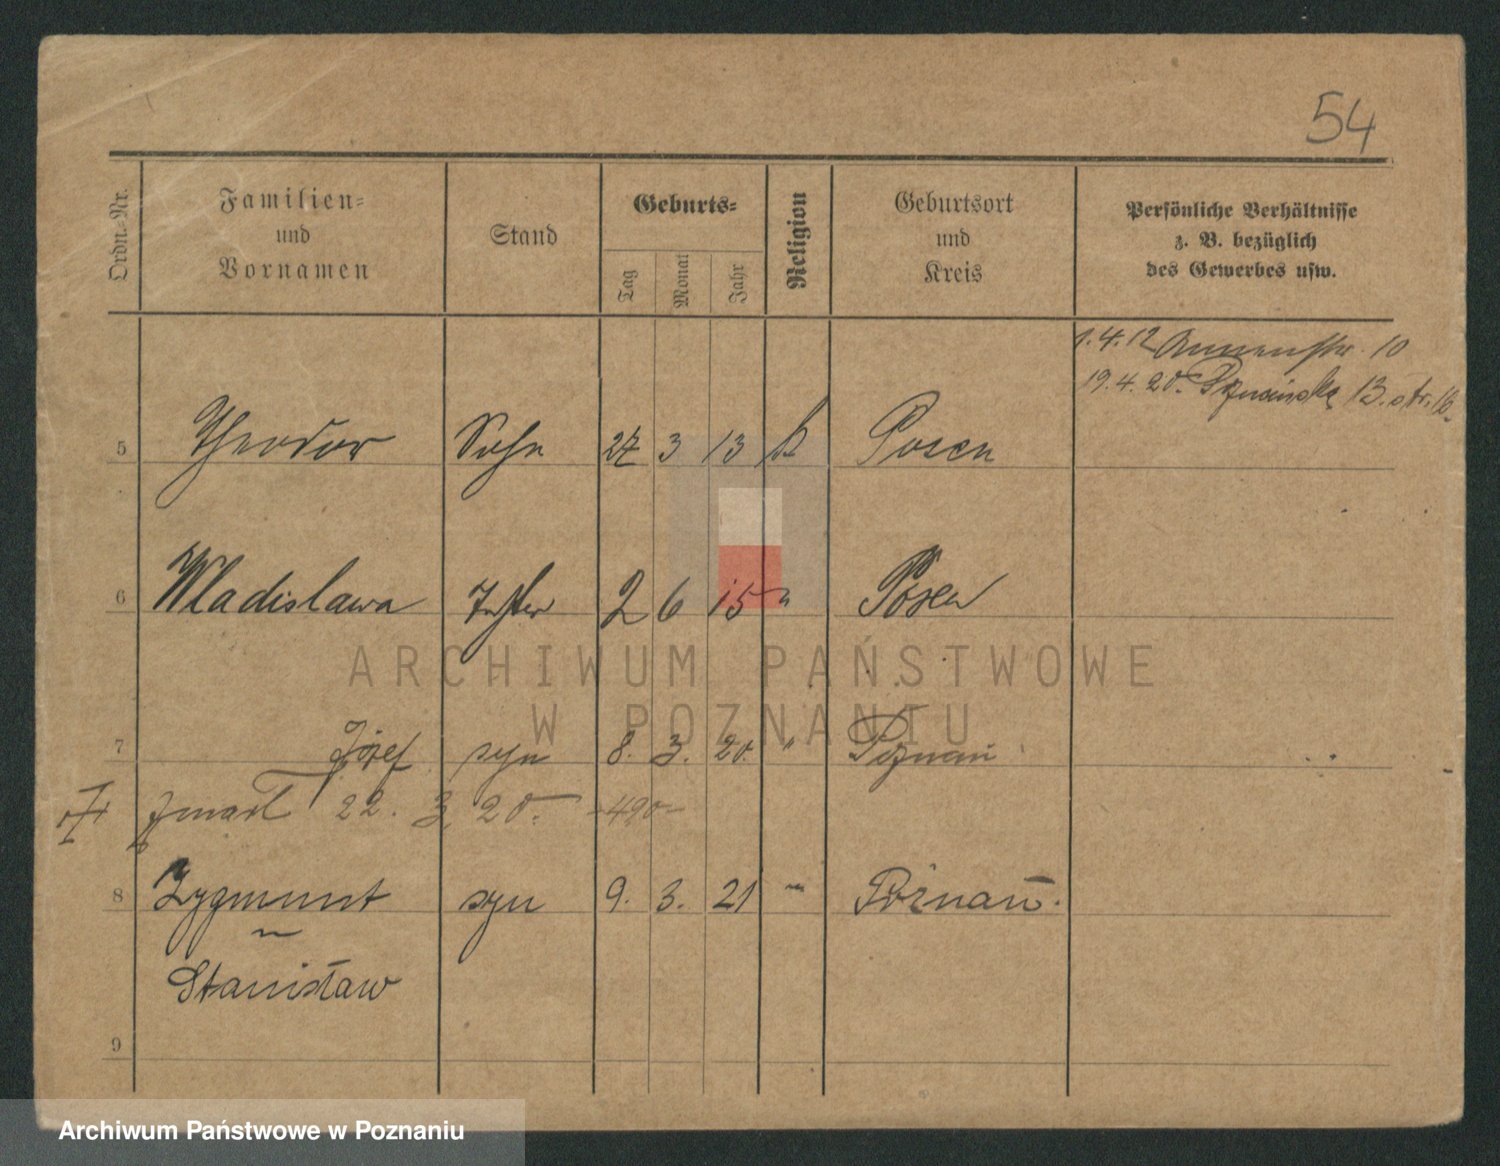 54
Ordn.-Nr.
Familien-
und
Vornamen
Stand
Geburts-
Tag
Monat
Jahr
Religion
Geburtsort
und
Kreis
Persönliche Verhältnisse
z. B. bezüglich
des Gewerbes usw.
1.4.12 Annenstr. 10
19.4.20. Poznańska 13. str. 16.
5 Theodor Sohn 27 3 13 k Posen
6 Wladislawa Tochter 2 6 15 " Posen
7 Józef syn 8. 3. 20. " Poznań
zmarł 22. 3 20. -490-
8 Zygmunt syn 9. 3. 21 " Poznań.
Stanisław
9
ARCHIWUM PAŃSTWOWE
W POZNANIU
Archiwum Państwowe w Poznaniu